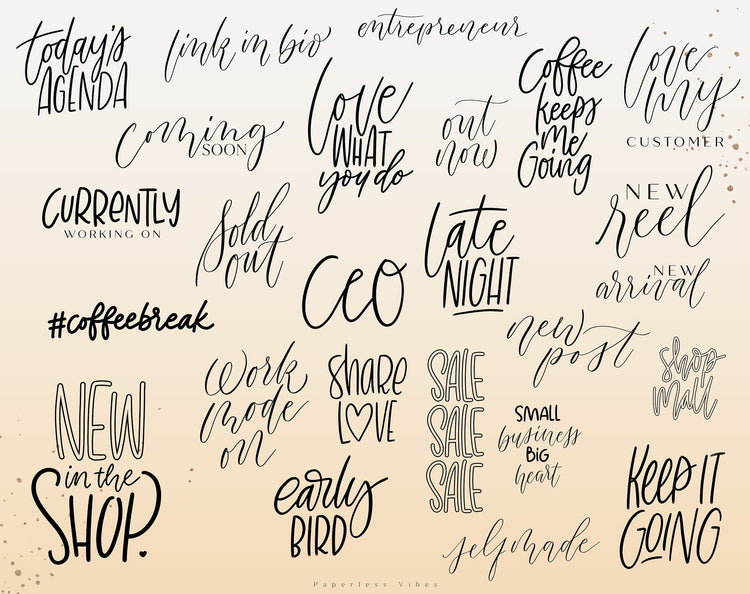 today's
AGENDA
link in bio
entrepreneur
Coming
SOON
love
WHAT
you do
out
now
Coffee
keeps
me
Going
love
my
CUSTOMER
CURRENTLY
WORKING ON
Sold
out
CEO
late
NIGHT
NEW
reel
NEW
arrival
#coffeebreak
new
post
Work
mode
on
share
LOVE
SALE
SALE
SALE
SMALL
business
BIG
heart
shop
mall
NEW
in the
SHOP.
early
BIRD
selfmade
KEEP IT
GOING
Paperless Vibes